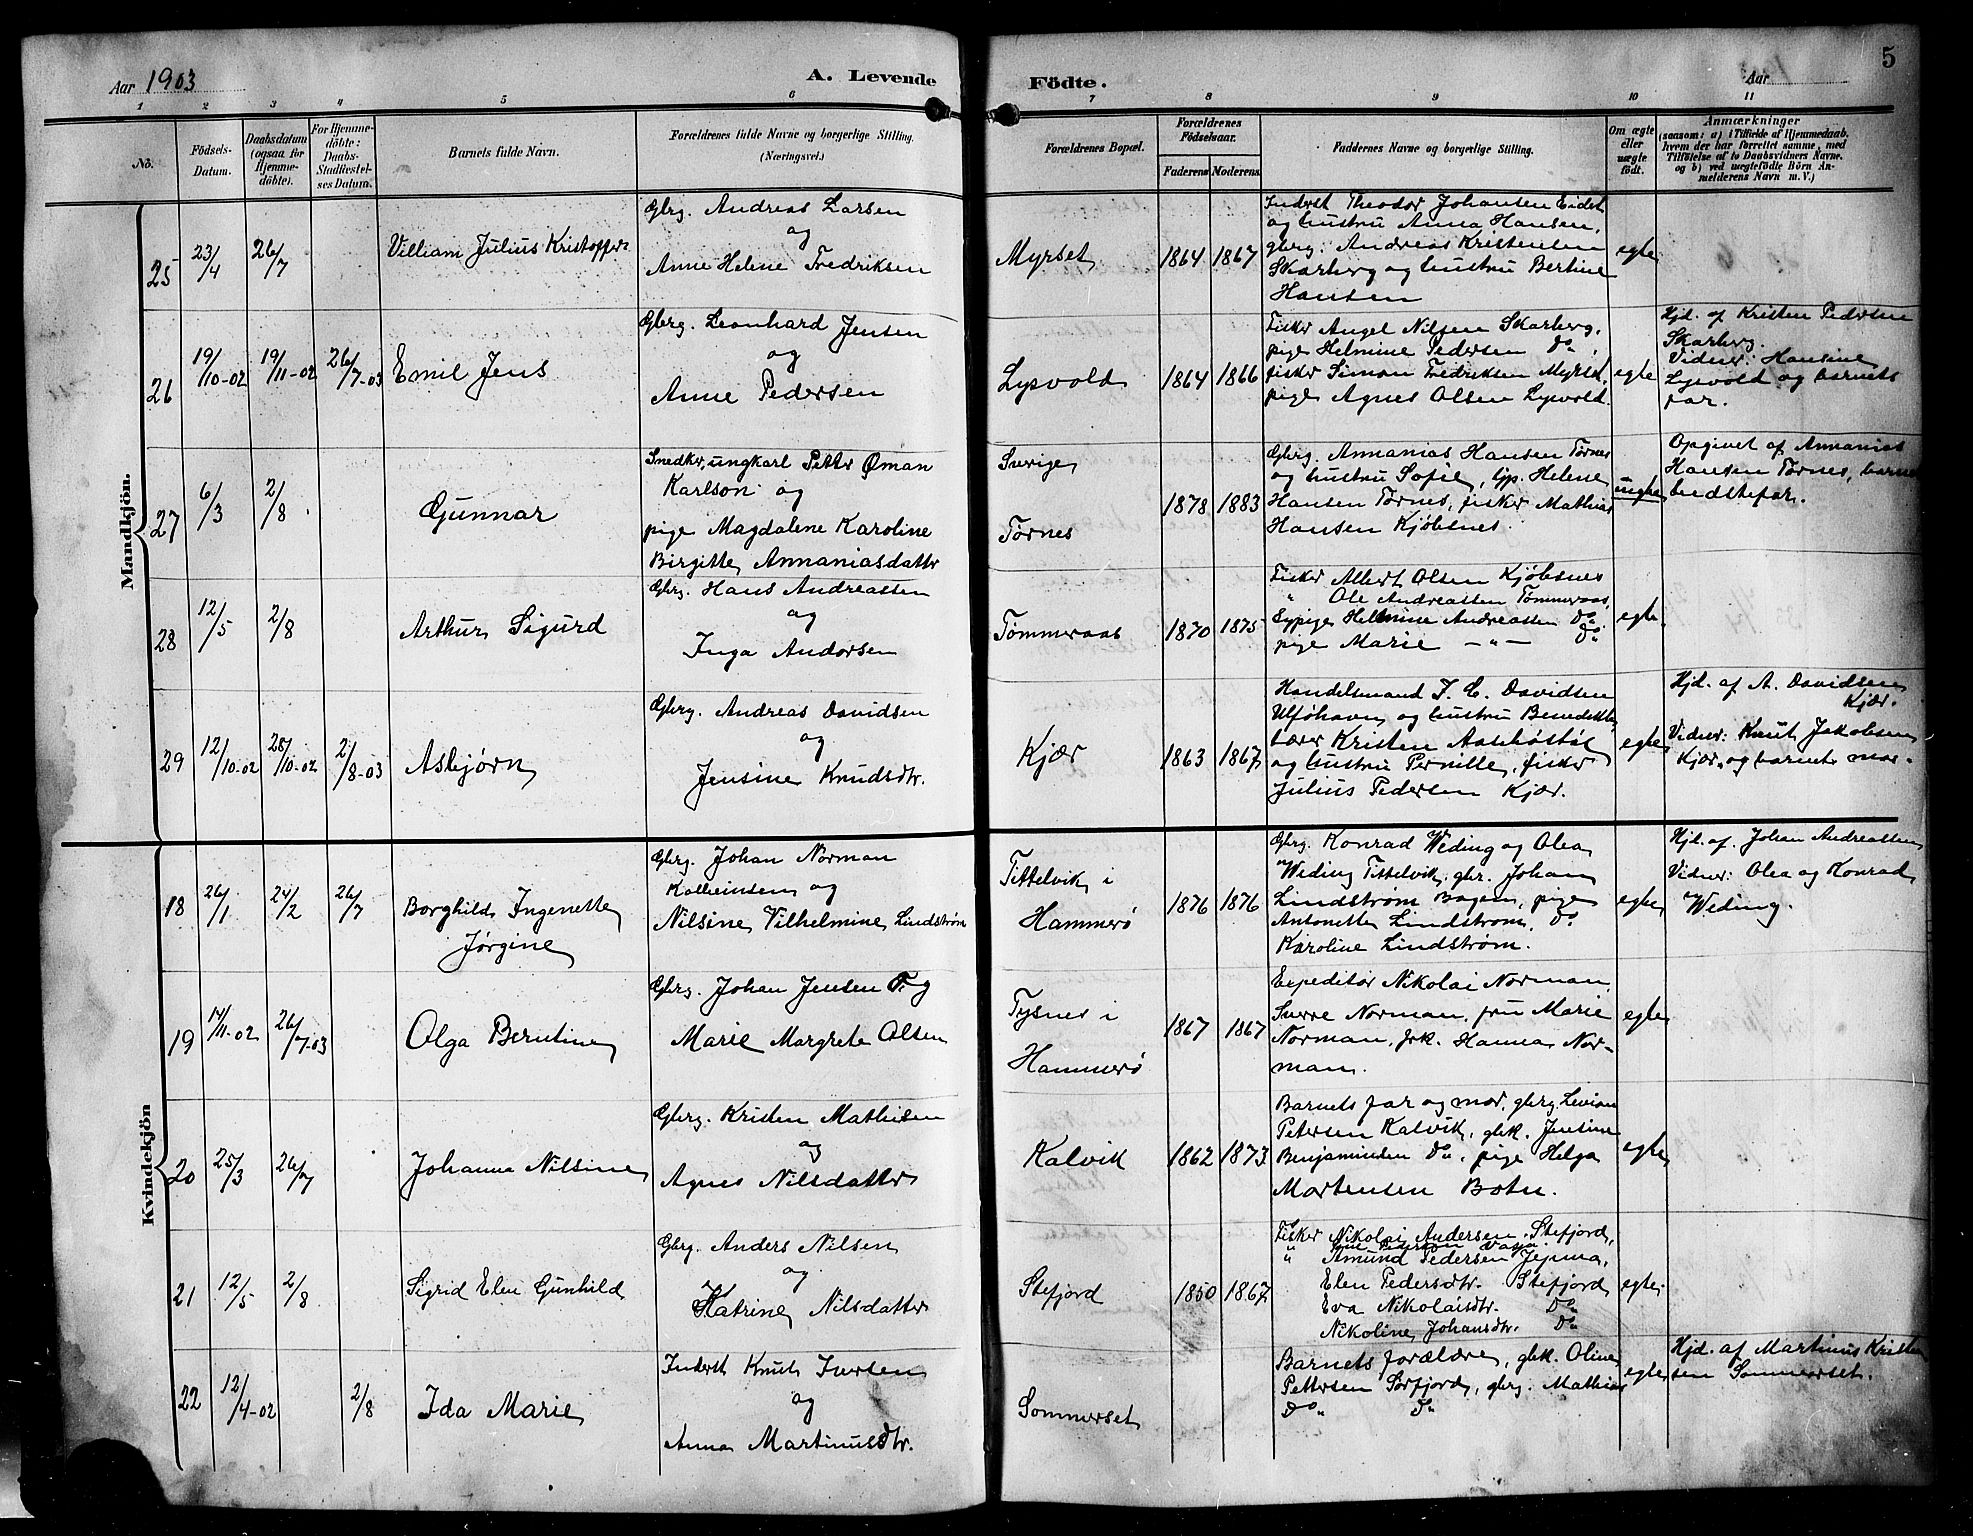 Aar 1903
A. Levende Födte.
Aar
5
1 2 3 4 5 6 7 8 9 10 11
No.
Födsels-Datum.
Daabsdatum (ogsaa for Hjemme-döbte).
For Hjemme-döbte: Daabs-Stadfæstel-ses Datum.
Barnets fulde Navn.
Forældrenes fulde Navne og borgerlige Stilling. (Næringsvei.)
Forældrenes Bopæl.
Forældrenes Födselsaar.
Faderens Moderens
Faddernes Navne og borgerlige Stilling.
Om ægte eller uægte födt.
Anmærkninger
(saasom: a) i Tilfælde af Hjemmedaab,
hvem der har forrettet samme, med
Tilföielse af to Daabsvidners Navne,
og b) ved uægtefödte Börn An-
melderens Navn m. V.)
Mandkjön.
25
23/4
26/7
Villiam Julius Kristoffer
Gbrg. Andreas Larsen
og
Anne Helene Fredriksen
Myrset
1864 1867
Inderst Theodor Johansen Eidet
og hustru Anna Hansen,
gbrg. Andreas Kristensen
Skarberg og hustru Bertine
Hansen
egte
26
19/10-02
19/11-02
26/7-03
Emil Jens
Gbrg. Leonhard Jensen
og
Anne Pedersen
Lysvold
1864 1866
Fisker Angel Nilsen Skarberg,
pige Helmine Pedersen Do,
fisker Simon Fredriksen Myrset,
pige Agnes Olsen Lysvold.
egte
Hjd. af Kristen Pedersen
Skarberg.
Vidner: Hansine
Lysvold og barnets
far.
27
6/3
2/8
Gunnar
Snedker, ungkarl Petter Øman
Karlson og
pige Magdalene Karoline
Birgitte Annaniasdatter
Sverige
Tørnes
1878 1883
Gbrg. Annanias Hansen Tørnes
og hustru Sofie, tjp. Helene
Hansen Tørnes, fisker Mathias
Hansen Kjøbsnes.
uegte
Opgivet af Annanias
Hansen Tørnes, barnets
bedstefar.
28
12/5
2/8
Arthur Sigurd
Gbrg. Hans Andreassen
og
Inga Andorsen
Tømmeraas
1870 1875
Fisker Albert Olsen Kjøbsnes
" Ole Andreassen Tømmeraas,
Sypige Helmine Andreassen Do
pige Marie — " — Do
egte.
29
12/10-02
28/10-02
2/8-03
Asbjørn
Gbrg. Andreas Davidsen
og
Jensine Knudsdtr.
Kjær
1863 1867
Handelsmand J. C. Davidsen
Ulføhavn og hustru Benedikte,
lærer Kristen
og hustru Pernille, fisker
Julius Pedersen Kjær.
egte
Hjd. af A. Davidsen
Kjær.
Vidner: Knut Jakobsen
Kjær, og barnets mor.
Kvindekjön
18
26/1
24/2
26/7
Borghild Ingenette
Jørgine
Gbrg. Johan Norman
Kolbeinsen og
Nilsine Vilhelmine Lindstrøm
Tittelvik i
Hammerø
1876 1876
Gbrg. Konrad Weding og Olea
Weding Tittelvik, gbr. Johan
Lindstrøm Bogen, pige
Antonette Lindstrøm, Do
Karoline Lindstrøm.
egte
Hjd. af. Johan Andreassen
Vidner: Olea og Konrad
Weding.
19
17/11-02
26/7-03
Olga Berntine
Gbrg. Johan Jensen og
Marie Margrete Olsen
Tysnes i
Hammerø
1867 1867
Expeditør Nikolai Norman,
Sverre Norman, fru Marie
Norman, frk. Hanna Nor-
man.
egte
20
25/3
26/7
Johanna Nilsine
Gbrg. Kristen Mathisen
og
Agnes Nilsdatter
Kalvik
1862 1873
Barnets far og mor, gbrg.
Petersen Kalvik, gbk. Jensine
Benjaminsen Do, pige Helga
Mortensen Botn.
egte
21
12/5
2/8
Sigrid Elen Gunhild
Gbrg. Anders Nilsen
og
Katrine Nilsdatter
Stefjord
1850 1867
Fisker Nikolai Andersen Stefjord,
" Amund Pedersen
Elen Pedersdtr. Stefjord
Eva Nikolaisdtr. Do
Nikoline Johansdtr. Do
egte.
22
12/4-02
2/8
Ida Marie
Inderst Knut Iversen
og
Anna Martinusdtr.
Sommerset
Barnets forældre, gbk. Oline
Pettersen Sørfjord, gbrg. Mathias
Do Do
egte
Hjd. af Martinus Kristen
sen Sommerset.